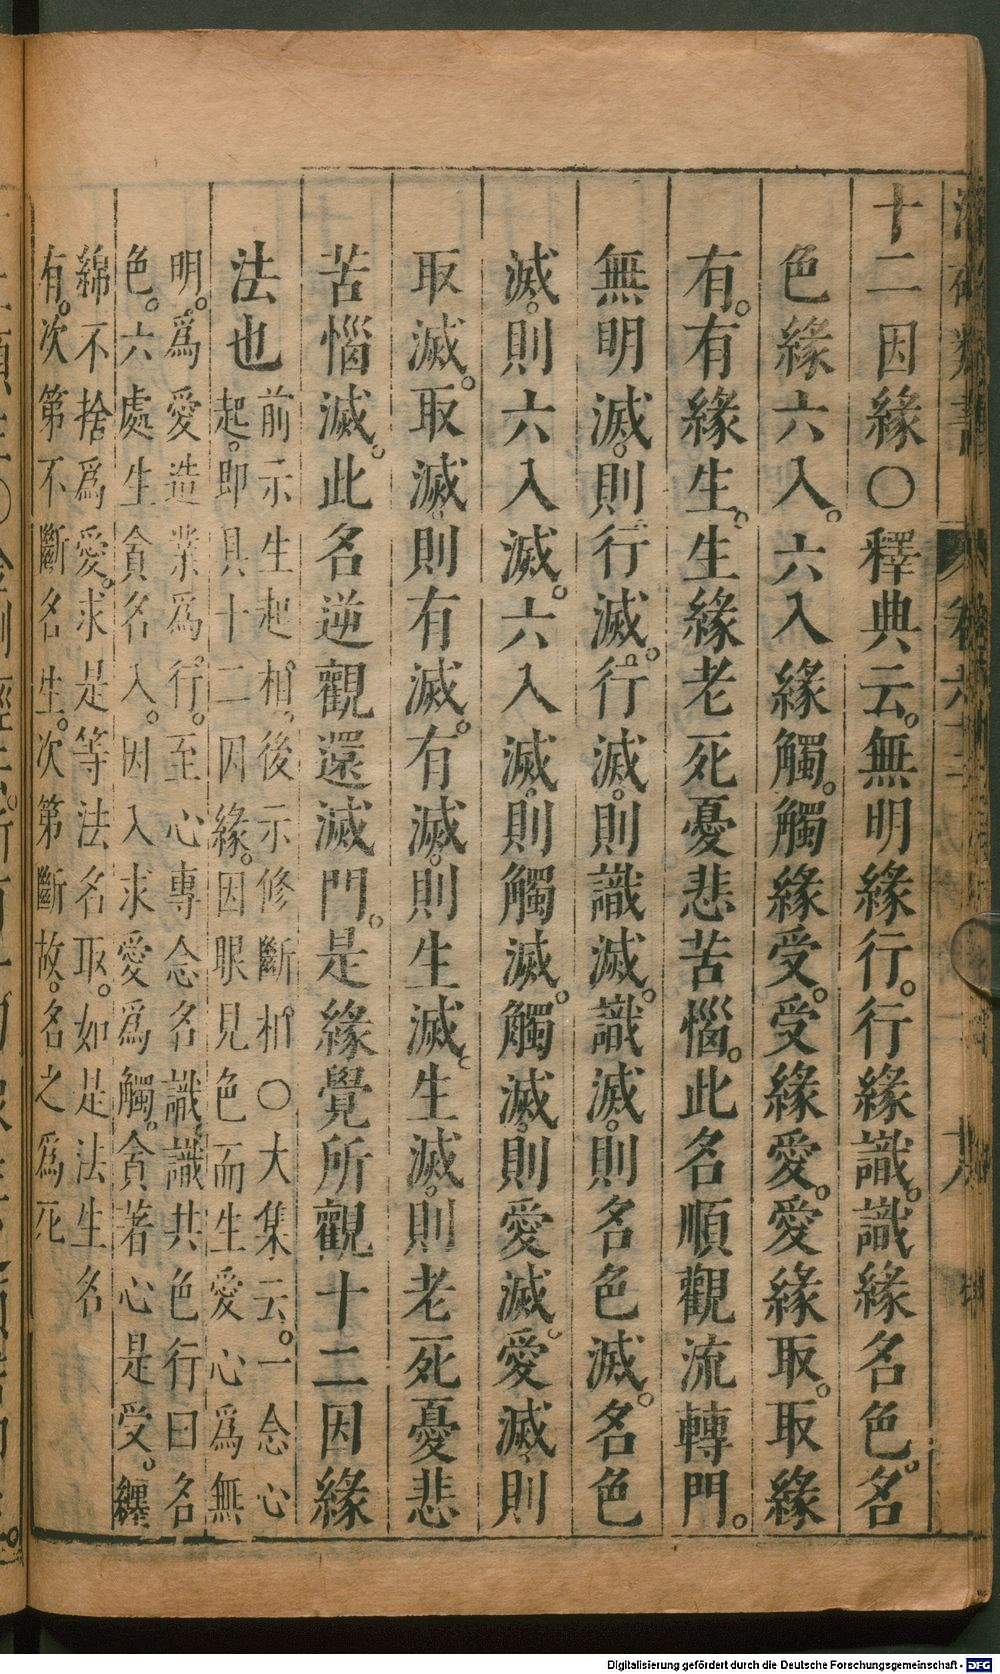 十二因緣〇釋典云。無明緣行。行緣識。識緣名色。名
色緣六入。六入緣觸。觸緣受。受緣愛。愛緣取。取緣
有。有緣生。生緣老死憂悲苦惱。此名順觀流轉門。
無明滅。則行滅。行滅。則識滅。識滅。則名色滅。名色
滅。則六入滅。六入滅。則觸滅。觸滅。則愛滅。愛滅。則
取滅。取滅。則有滅。有滅。則生滅。生滅。則老死憂悲
苦惱滅。此名逆觀還滅門。是緣覺所觀十二因緣
法也
前示生起相。後示修斷相〇大集云。一念心
起。即具十二因緣。因眼見色而生愛心爲無
明。爲愛造業爲行。至心專念名識。識共色行曰名
色。六處生貪名入。因入求愛爲觸。貪著心是受。纏
綿不捨爲愛。求是等法名取。如是法生名
有。次第不斷名生。次第斷故。名之爲死
Digitalisierung gefördert durch die Deutsche Forschungsgemeinschaft - DFG